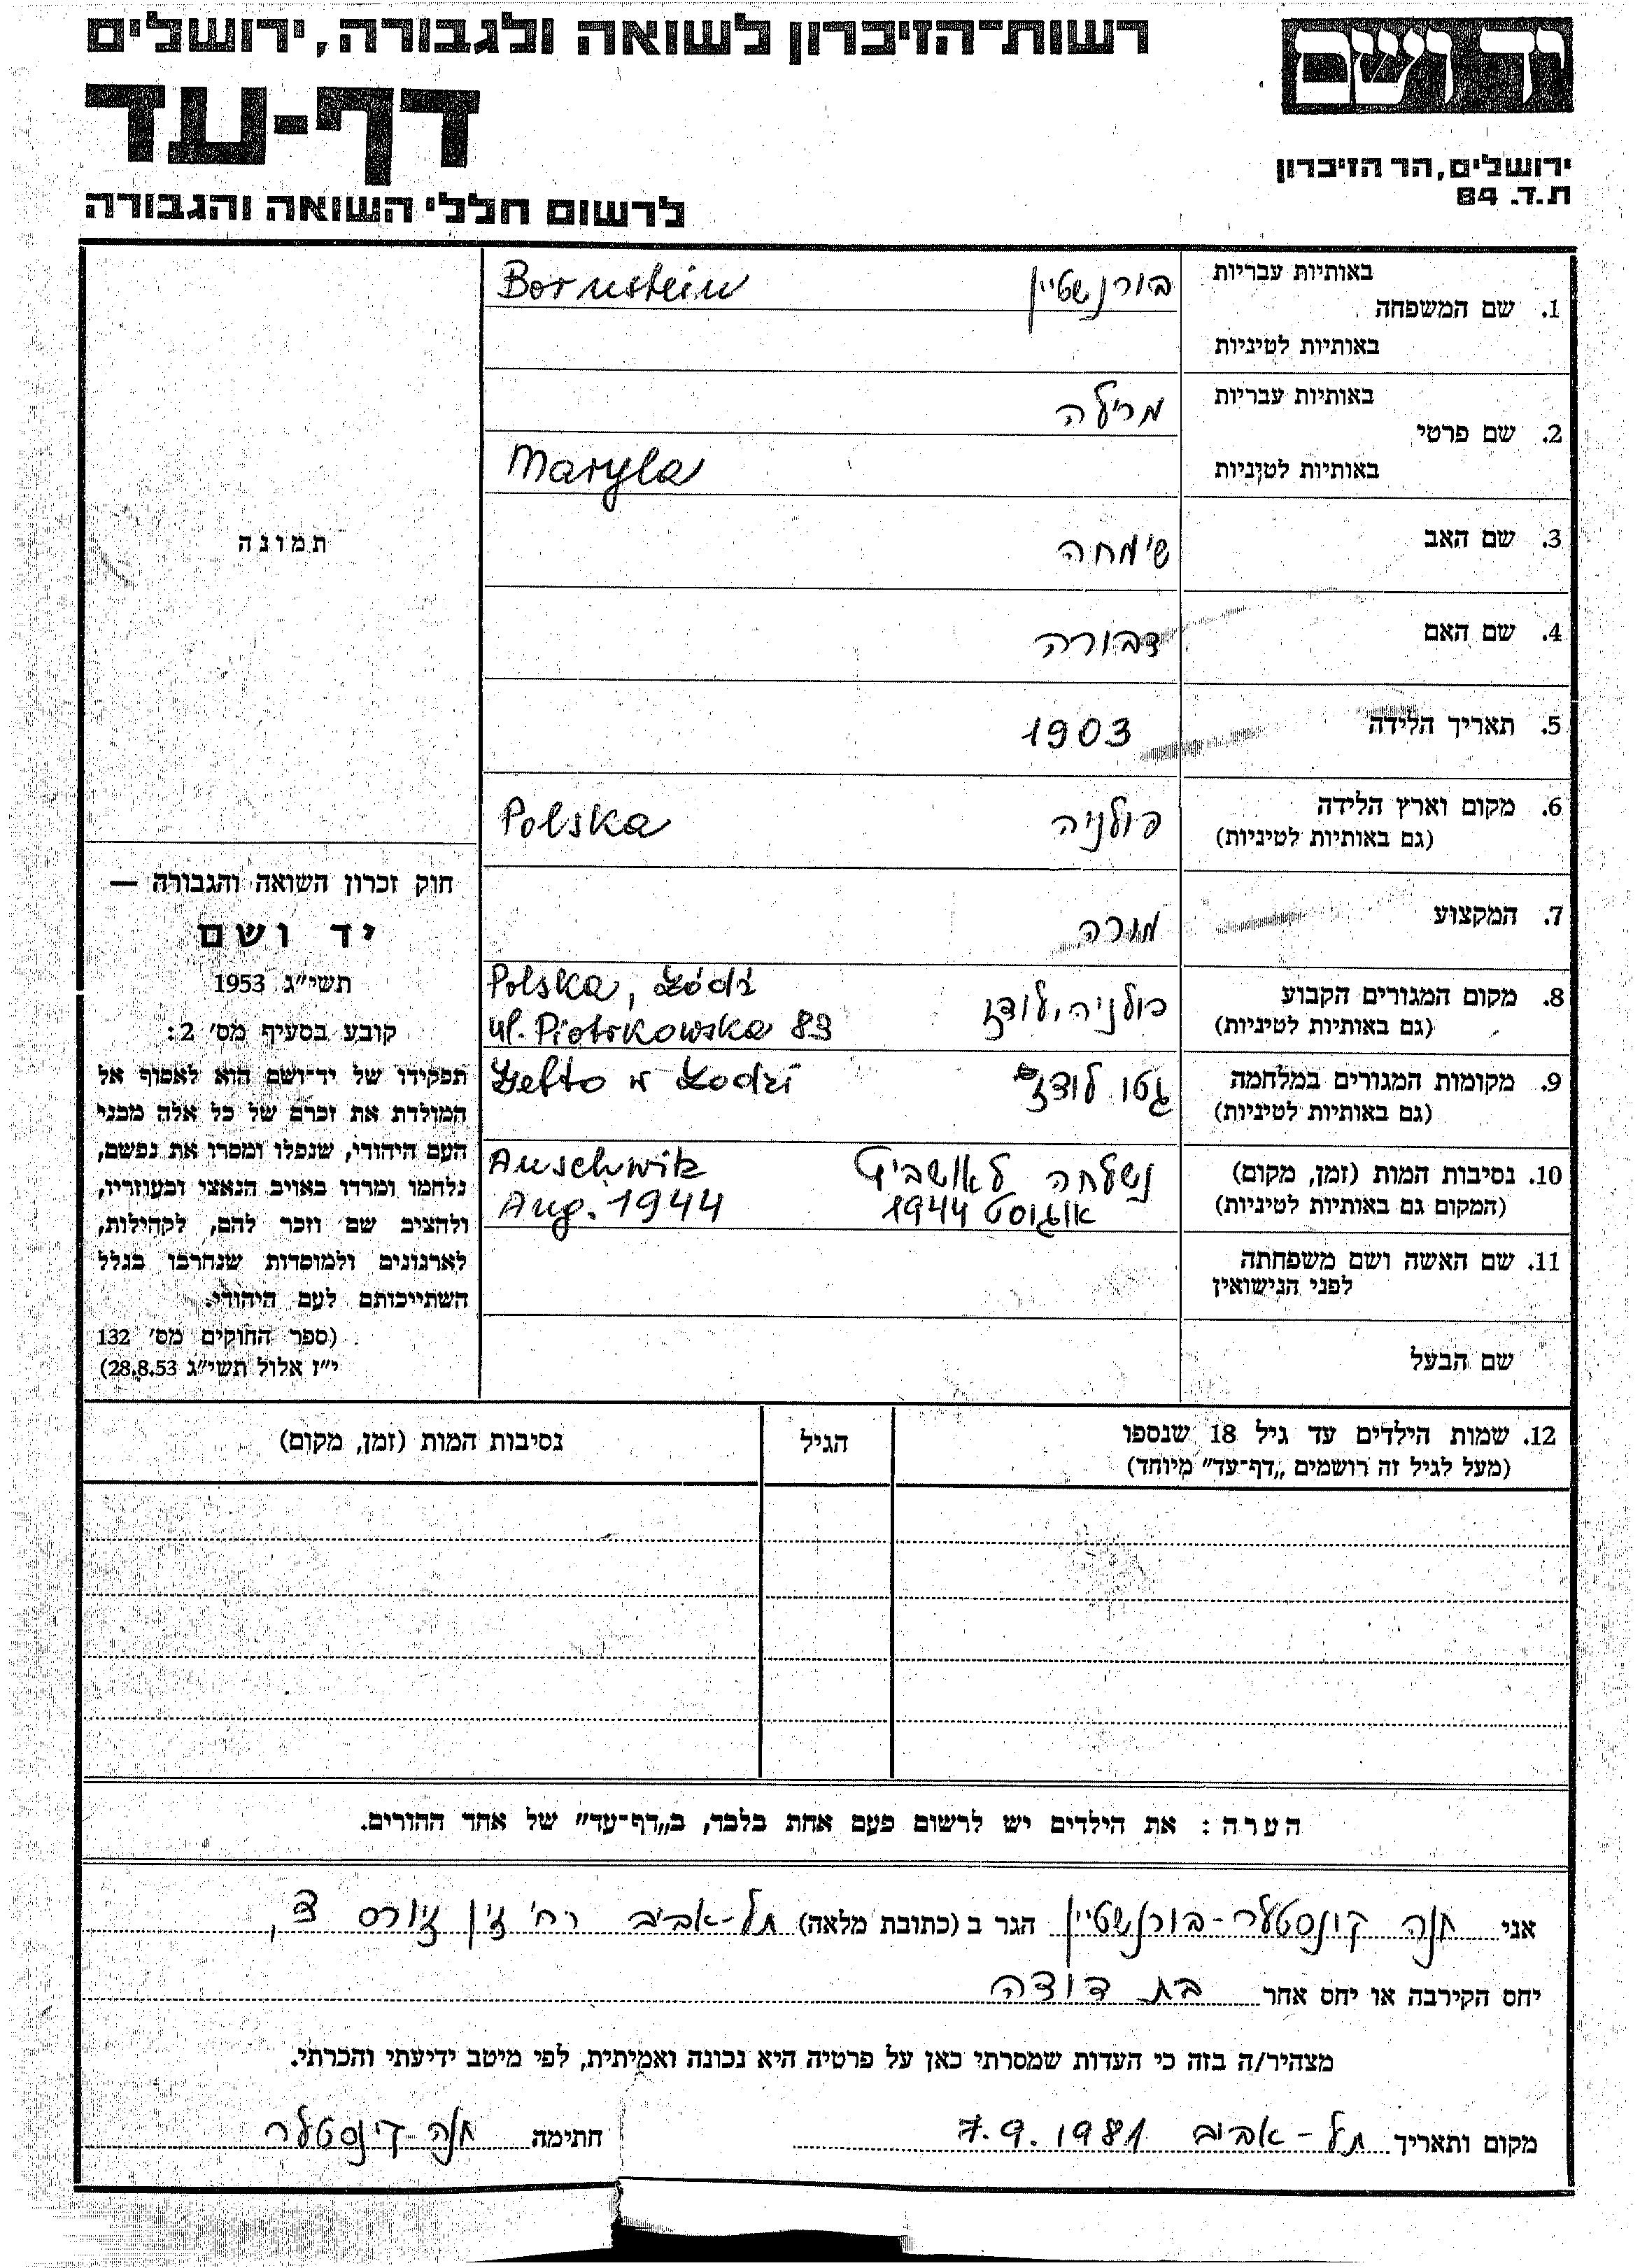 רשות-הזיכרון לשואה ולגבורה, ירושלים
יד ושם
דף-עד
ירושלים, הר הזיכרון
ת.ד. 84
לרשום חללי השואה והגבורה
באותיות עבריות
1. שם המשפחה
בורנשטיין
Bornstein
באותיות לטיניות
באותיות עבריות
2. שם פרטי
מרילה
באותיות לטיניות
Maryla
3. שם האב
שימחה
4. שם האם
דבורה
5. תאריך הלידה
1903
6. מקום וארץ הלידה
(גם באותיות לטיניות)
פולניה
Polska
7. המקצוע
מורה
8. מקום המגורים הקבוע
(גם באותיות לטיניות)
פולניה, לודז
Polska, Łódź
ul. Piotrkowska 83
9. מקומות המגורים במלחמה
(גם באותיות לטיניות)
גטו לודז
Getto w Łodzi
10. נסיבות המות (זמן, מקום)
(המקום גם באותיות לטיניות)
נשלחה לאושביץ
אוגוסט 1944
Auschwitz
Aug. 1944
11. שם האשה ושם משפחתה
לפני הנישואין
שם הבעל
תמונה
חוק זכרון השואה והגבורה —
יד ושם
תשי״ג 1953
קובע בסעיף מס׳ 2:
תפקידו של יד-ושם הוא לאסוף אל
המולדת את זכרם של כל אלה מבני
העם היהודי, שנפלו ומסרו את נפשם,
נלחמו ומרדו באויב הנאצי ובעוזריו,
ולהציב שם וזכר להם, לקהילות,
לארגונים ולמוסדות שנחרבו בגלל
השתייכותם לעם היהודי.
(ספר החוקים מס׳ 132
י״ז אלול תשי״ג 28.8.53)
12. שמות הילדים עד גיל 18 שנספו
(מעל לגיל זה רושמים „דף-עד״ מיוחד)
הגיל
נסיבות המות (זמן, מקום)
הערה: את הילדים יש לרשום פעם אחת בלבד, ב„דף-עד״ של אחד ההורים.
אני חנה קינסטלר-בורנשטיין הגר ב (כתובת מלאה) תל-אביב רח׳ ז׳ן ז׳ורס
יחס הקירבה או יחס אחר בת דודה
מצהיר/ה בזה כי העדות שמסרתי כאן על פרטיה היא נכונה ואמיתית, לפי מיטב ידיעתי והכרתי.
מקום ותאריך תל-אביב 7.9.1981 חתימה חנה קינסטלר